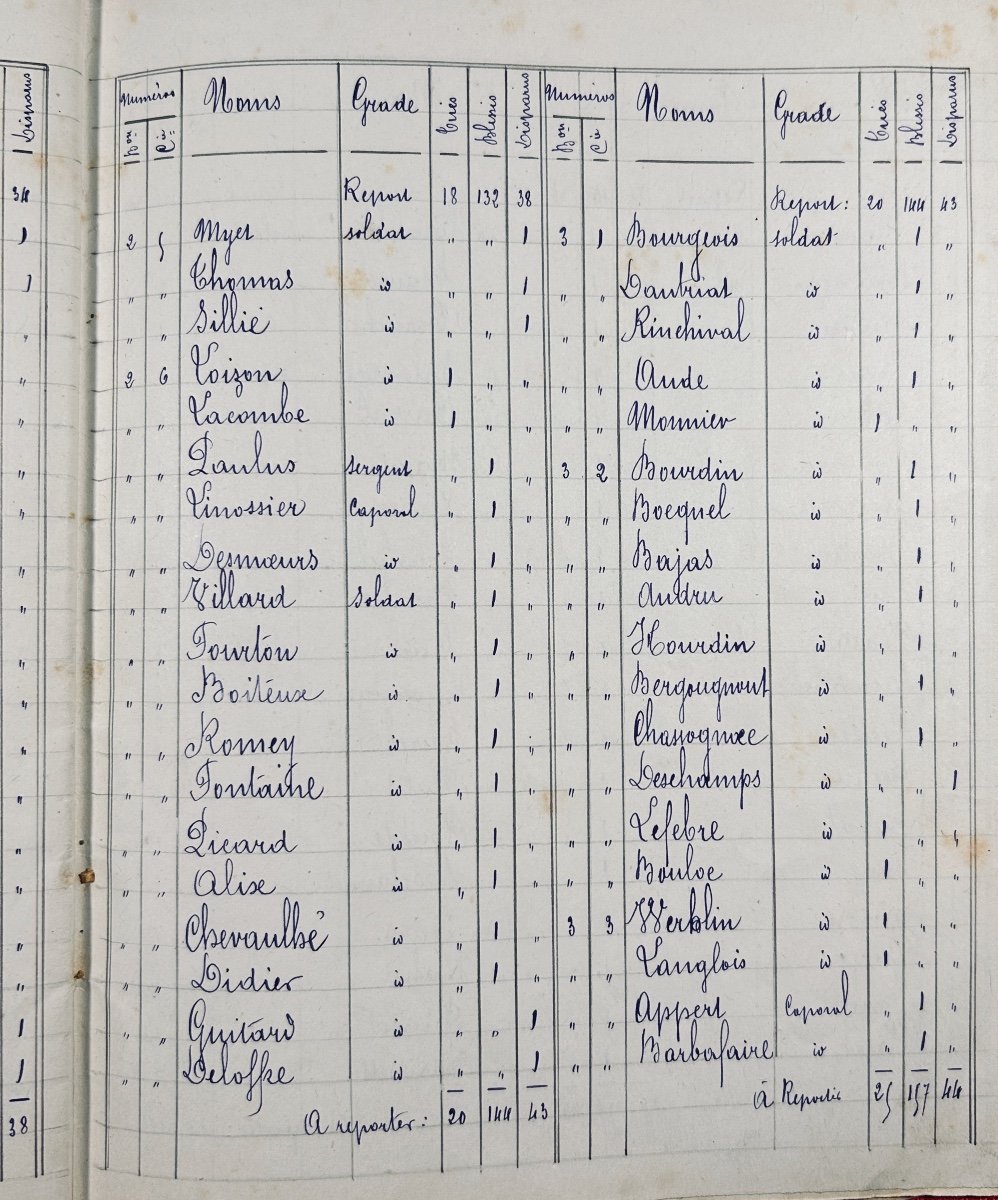 Disparus
34
1
1
"
"
"
"
"
"
"
"
"
"
"
"
"
"
"
1
1
38
Numéros Noms Grade Tués Blessés Disparus
Bon Cie
Report 18 132 38
2 5 Myet soldat " " 1
" " Thomas id " " 1
" " Sillié id " " 1
2 6 Voizon id 1 " "
" " Lacombe id 1 " "
" " Paulus Sergent " 1 "
" " Vinossier Caporal " 1 "
" " Desmœurs id " 1 "
" " Villard Soldat " 1 "
" " Fourton id " 1 "
" " Boiteux id " 1 "
" " Romey id " 1 "
" " Fontaine id " 1 "
" " Picard id " 1 "
" " Alix id " 1 "
" " Chevaulhé id " 1 "
" " Didier id " 1 "
" " Guitard id " " 1
" " Deloffre id " " 1
A reporter: 20 144 43
Numéros Noms Grade Tués Blessés Disparus
Bon Cie
Report: 20 144 43
3 1 Bourgeois soldat " 1 "
" " Dautriat id " 1 "
" " Rinchival id " 1 "
" " Aude id " 1 "
" " Monnier id 1 " "
3 2 Bourdin id " 1 "
" " Bocquel id " 1 "
" " Bajas id " 1 "
" " Andru id " 1 "
" " Hourdin id " 1 "
" " Bergougnout id " 1 "
" " id " 1 "
" " Deschamps id " " 1
" " Lefebre id 1 " "
" " Bouloc id 1 " "
3 3 Werklin id 1 " "
" " Langlois id 1 " "
" " Appert Caporal " 1 "
" " Barbafaire id " 1 "
à Reporter 25 157 44